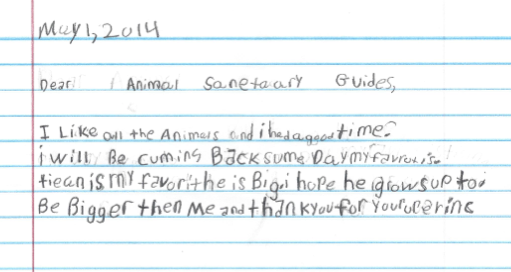 May 1, 2014
Dear Animal Sanetaary Guides,
I Like all the Animals and i had a good time.
i will Be cuming Back sume Day my favrot is
is my favorit he is Big. i hope he grows up to
Be Bigger then Me and thank you for your